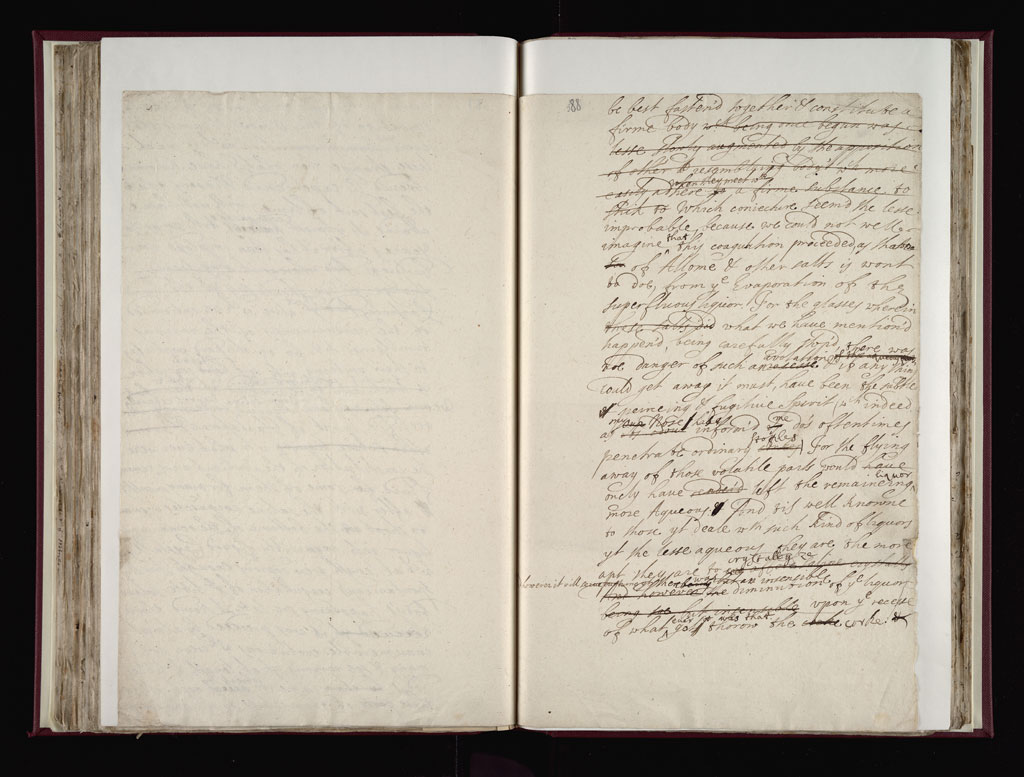 88
be best fasten'd together & constitute a
firme body wch being once began was
lesse slowly augmented by the apposition
of other & resembling body's wch more
when they meet wth
easily adhere to a firme substance to
stick to Which conjecture seem'd the lesse
improbable, because we could not well
imagine that this coagulation proceeded, as that
of Allome & other salts is wont
to doe, from ye Evaporation of the
superfluous liquor. For the glasses wherein
these salts did what we have mention'd
happen'd, being carefully stop'd, there was
noe danger of such an avolation & if any thing
could get away it must have been the subtle
piercing & fugitive Spirit, wch indeed
as those inform'd me do's oftentimes
penetrate ordinary For the flying
away of those volatile parts would have
liquor
onely have left the remaineing
more Aqueous. And tis well knowne
to those yt deale wth such kind of liquors
yt the lesse aqueous they are the more
crystallize
apt they are to
however insensible
And however the diminution of ye liquor
being but insensible upon ye recesse
ever it was that
of what got thorow the corke. &